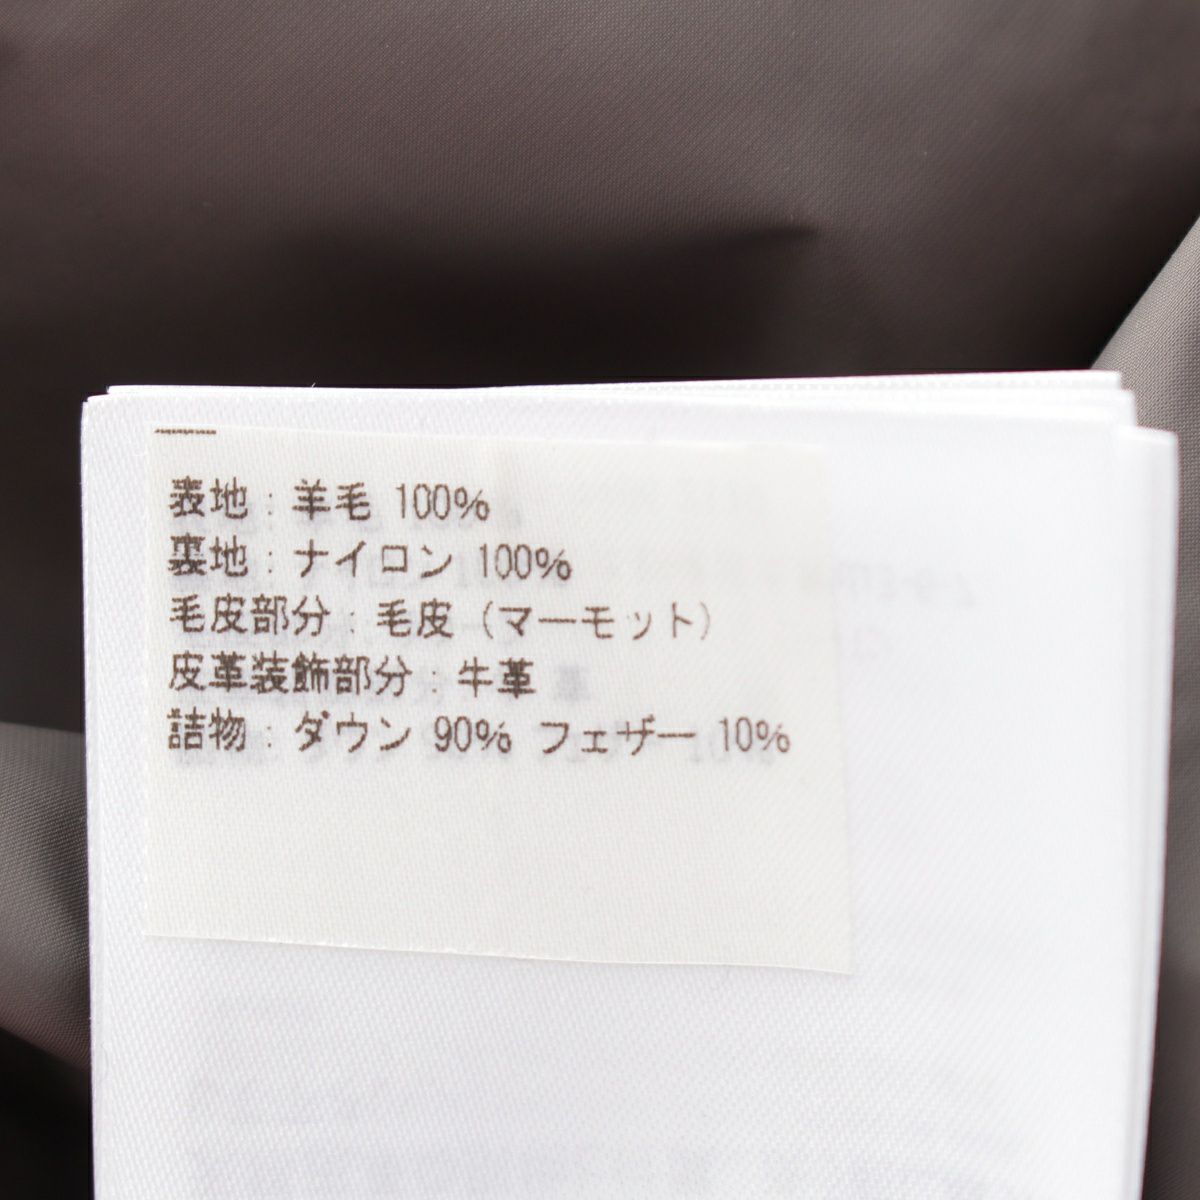 表地：羊毛 100%
裏地：ナイロン 100%
毛皮部分：毛皮（マーモット）
皮革装飾部分：牛革
詰物：ダウン 90% フェザー 10%